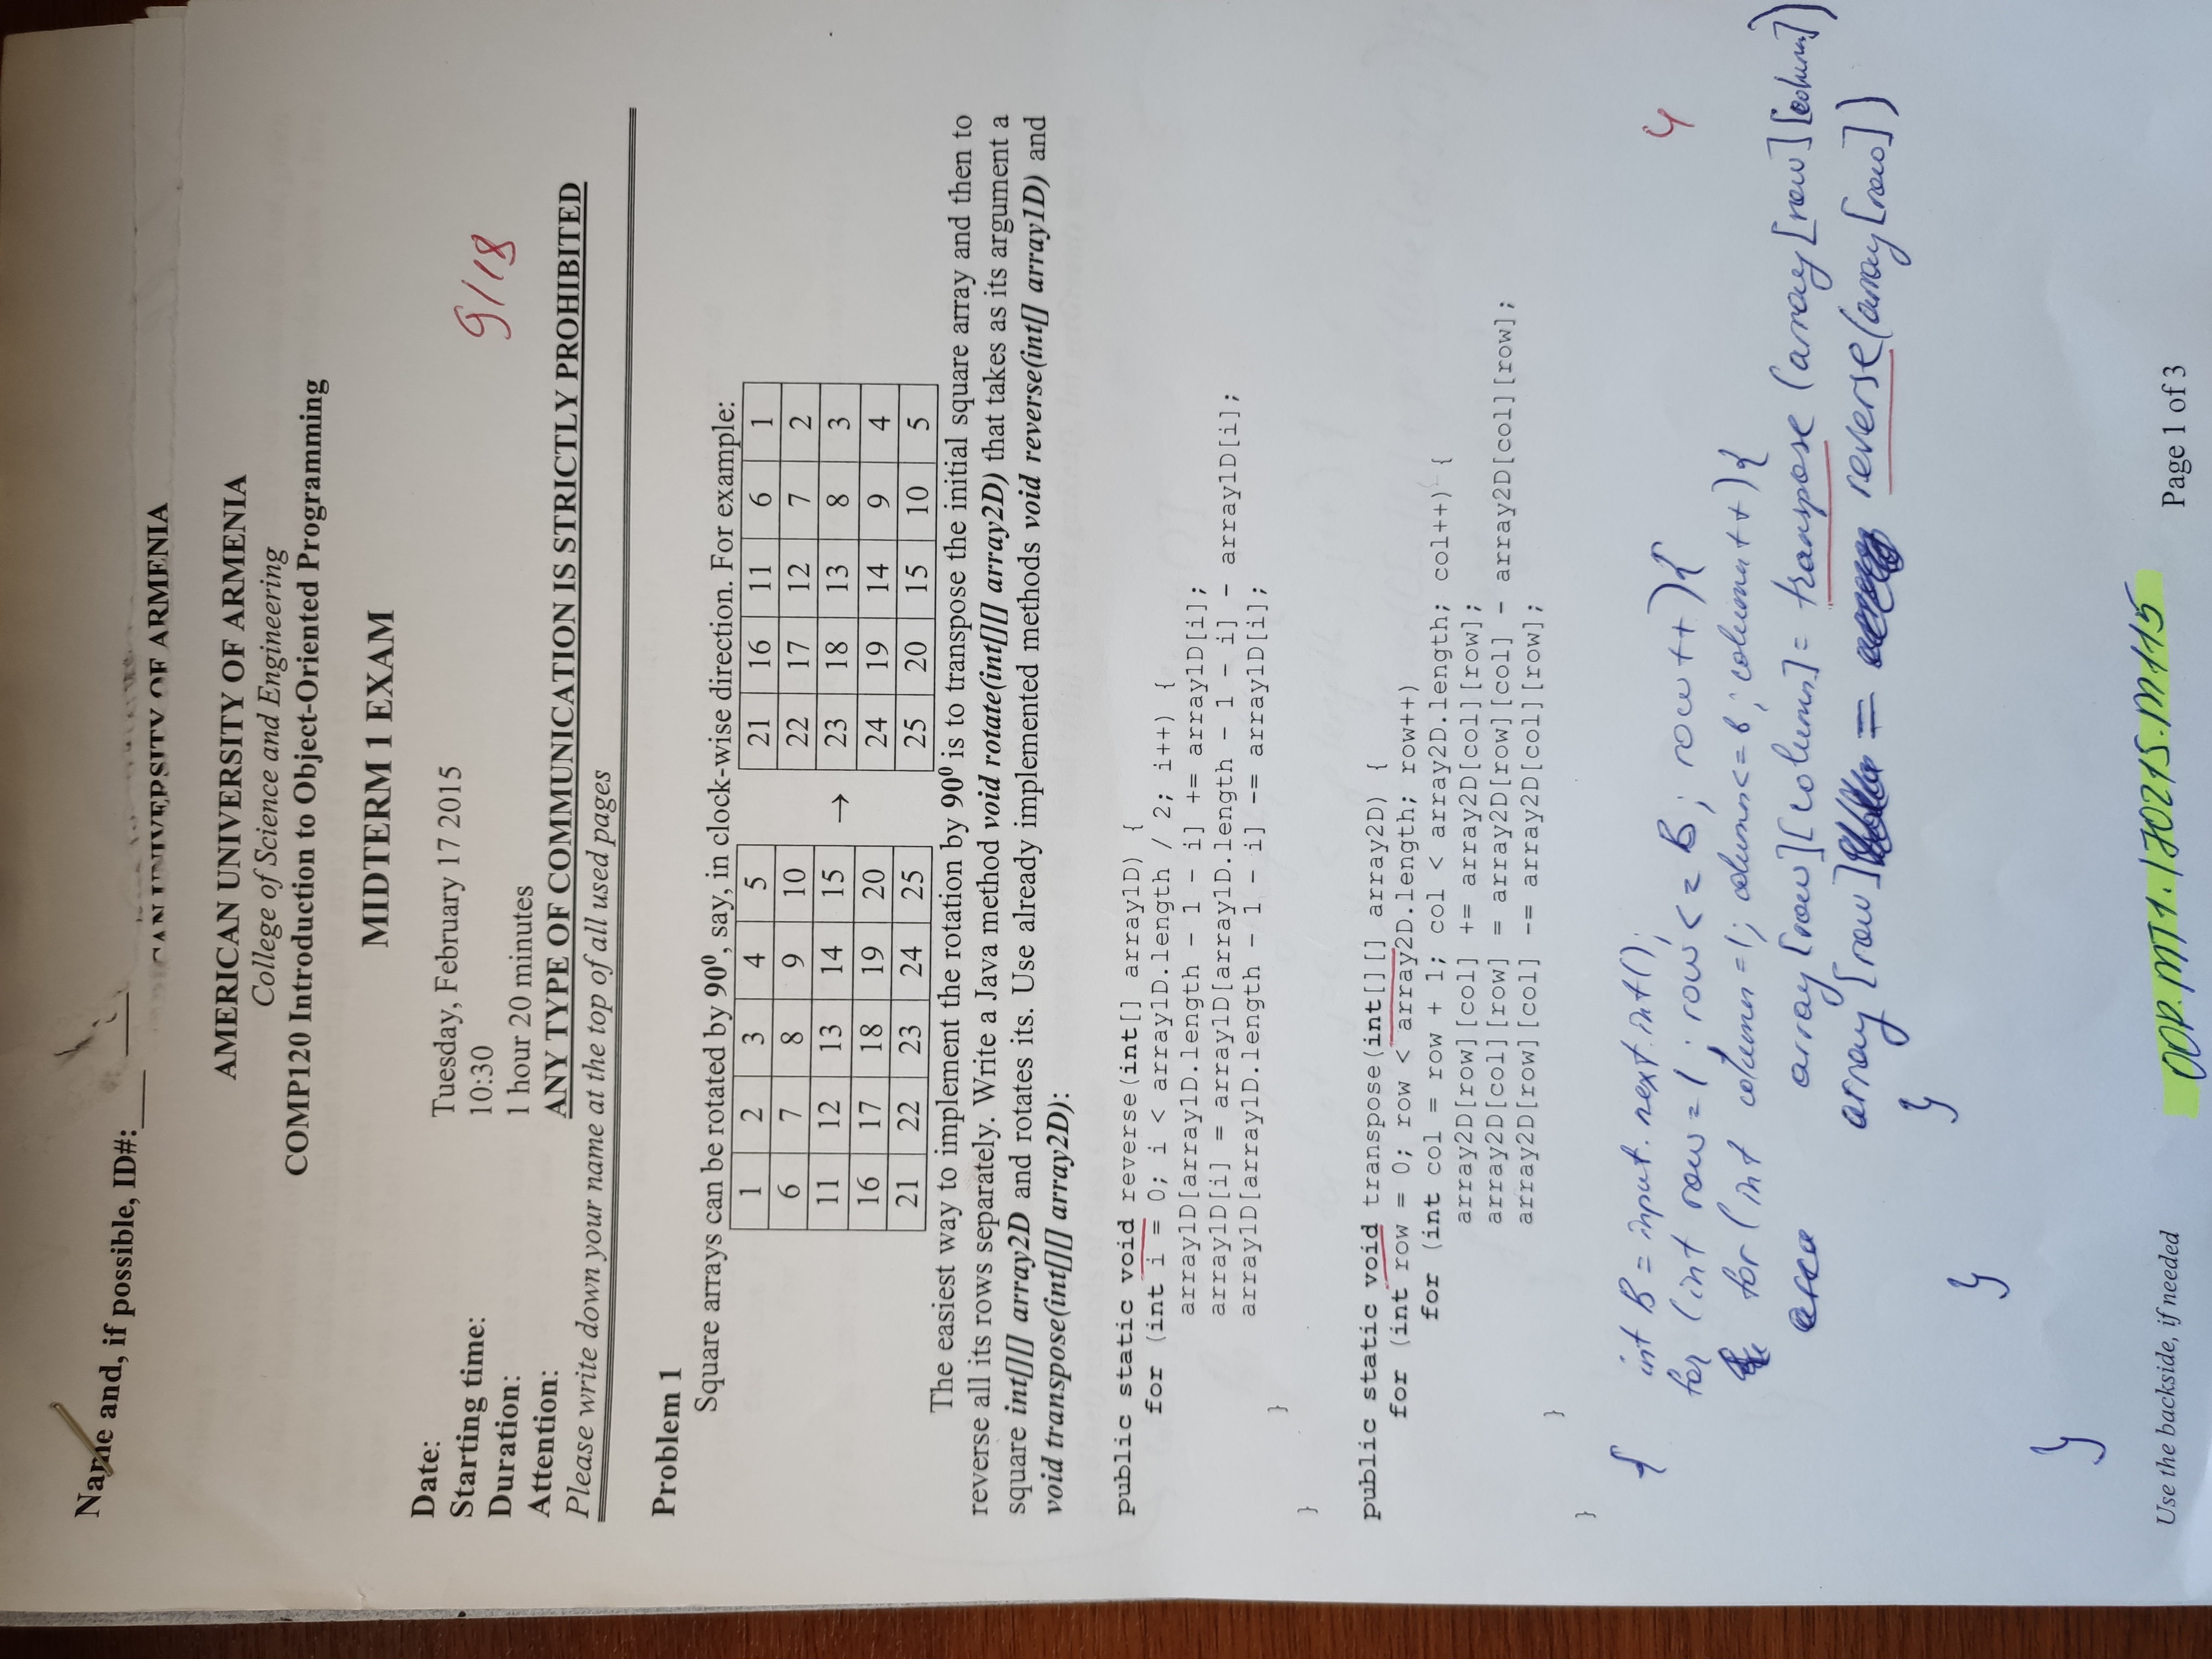 Name and, if possible, ID#:
CAN UNIVERSITY OF ARMENIA
AMERICAN UNIVERSITY OF ARMENIA
College of Science and Engineering
COMP120 Introduction to Object-Oriented Programming
MIDTERM 1 EXAM
Date: Tuesday, February 17 2015
Starting time: 10:30
Duration: 1 hour 20 minutes
Attention: ANY TYPE OF COMMUNICATION IS STRICTLY PROHIBITED
9/18
Please write down your name at the top of all used pages
Problem 1
Square arrays can be rotated by 90⁰, say, in clock-wise direction. For example:
1 2 3 4 5 21 16 11 6 1
6 7 8 9 10 22 17 12 7 2
11 12 13 14 15 → 23 18 13 8 3
16 17 18 19 20 24 19 14 9 4
21 22 23 24 25 25 20 15 10 5
The easiest way to implement the rotation by 90⁰ is to transpose the initial square array and then to
reverse all its rows separately. Write a Java method void rotate(int[][] array2D) that takes as its argument a
square int[][] array2D and rotates its. Use already implemented methods void reverse(int[] array1D) and
void transpose(int[][] array2D):
public static void reverse(int[] array1D) {
for (int i = 0; i < array1D.length / 2; i++) {
array1D[array1D.length - 1 - i] += array1D[i];
array1D[i] = array1D[array1D.length - 1 - i] - array1D[i];
array1D[array1D.length - 1 - i] -= array1D[i];
}
}
public static void transpose(int[][] array2D) {
for (int row = 0; row < array2D.length; row++)
for (int col = row + 1; col < array2D.length; col++) {
array2D[row][col] += array2D[col][row];
array2D[col][row] = array2D[row][col] - array2D[col][row];
array2D[row][col] -= array2D[col][row];
}
}
{ int B = input.next.int();
for (int row=1; row<=B; row++){
4
for (int column=1; column<=B; column++){
array[row][column]= transpose (array[row][column])
array[row] = reverse(array[row])
}
}
}
Use the backside, if needed
OOP.MT1.170215.M115
Page 1 of 3